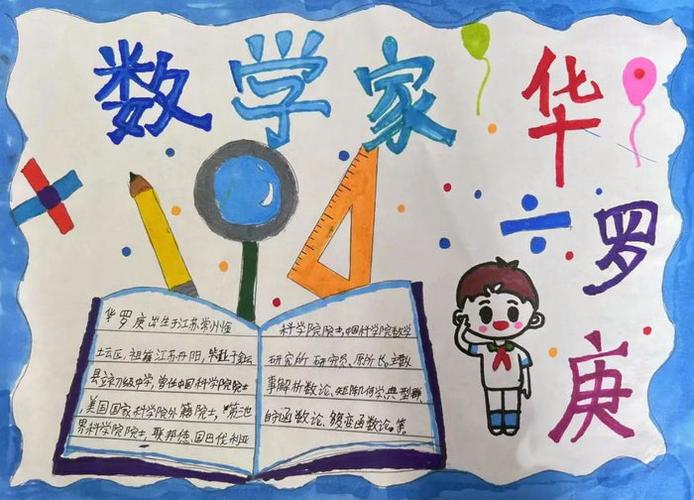 数学家
华
罗
庚
华罗庚出生于江苏常州
坛区,祖籍江苏丹阳,毕业于金坛
县立初级中学,曾任中国科学院院士
,美国国家科学院外籍院士,第
界科学院院士,联邦德国巴伐利亚
科学院院士,中国科学院数学
研究所研究员、原所长。主
事解析数论、矩阵几何学、典型群
的函数论、复变函数论。等